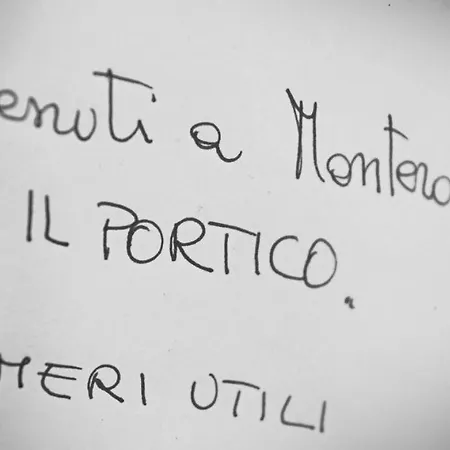 enuti a Montero
IL PORTICO.
MERI UTILI